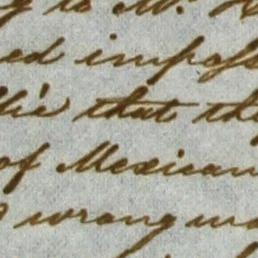 to Mr.
ed imposs
that the
of Mexican
wrong